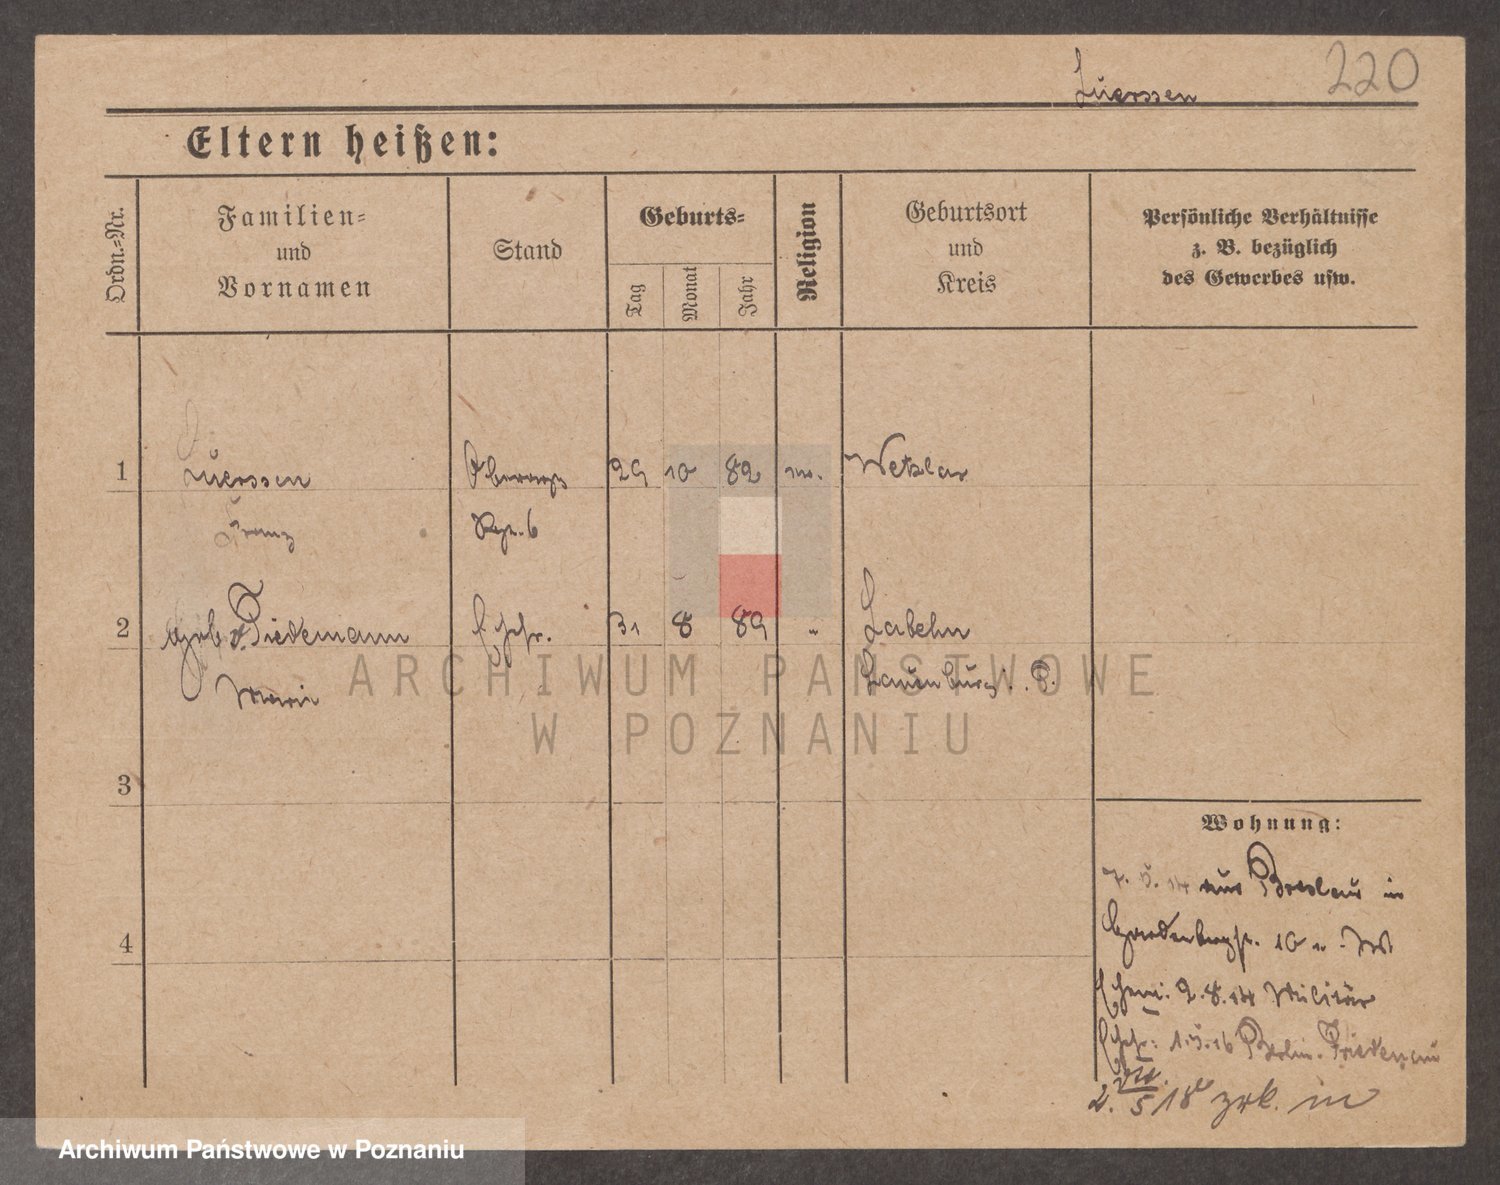 220
Luerssen
Eltern heißen:
Ordn.-Nr.
Familien-
und
Vornamen
Stand
Geburts-
Tag
Monat
Jahr
Religion
Geburtsort
und
Kreis
Persönliche Verhältnisse
z. B. bezüglich
des Gewerbes usw.
1 Luerssen 29 10 82 Wetzlar
Franz Rgt. 6
2 geb. v. Tiedemann Ehefr. 31 8 89 " Labehn
Marie Lauenburg i. P.
3
4
Wohnung:
7. 5. 14 aus Breslau in
10
Ehem. 2.8.14 Militär
Ehefr: 1.5.16 Berlin-Friedenau
2. 5/18 zrk. in
ARCHIWUM PAŃSTWOWE
W POZNANIU
Archiwum Państwowe w Poznaniu